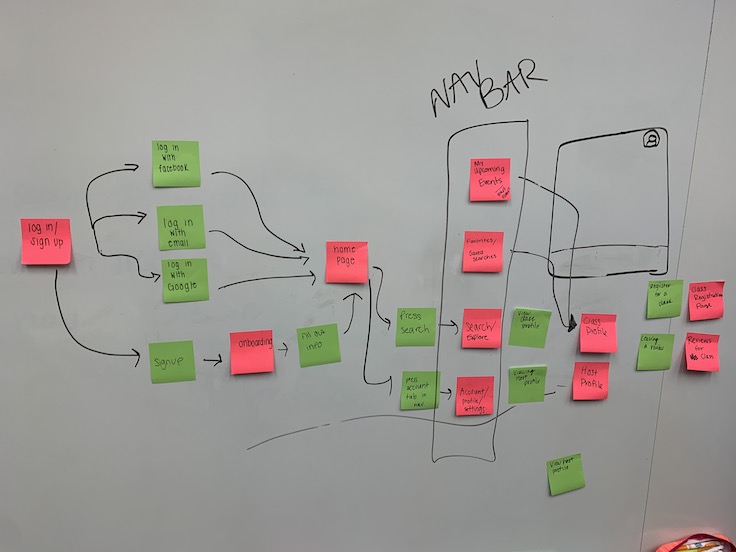 NAV
BAR
log in/
sign up
log in
with
facebook
log in
with
email
log in
with
Google
signup
onboarding
fill out
info
home
page
press
search
press
account
tab in
nav
My
Upcoming
Events
Favorites/
Saved
searches
Search/
Explore
Account/
profile/
settings
View
class
profile
Viewing
Host
profile
Class
Profile
Host
Profile
Register
for a
class
Class
Registration
Page
Leaving
a
Reviews
for
Class
View host
profile